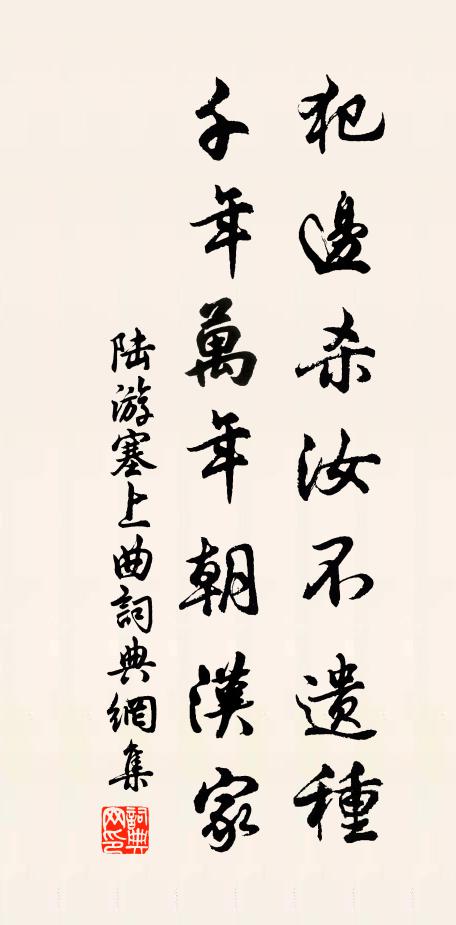 犯邊杀汝不遗種
千年萬年朝漢家
陆游塞上曲詞典網集
詞典網印